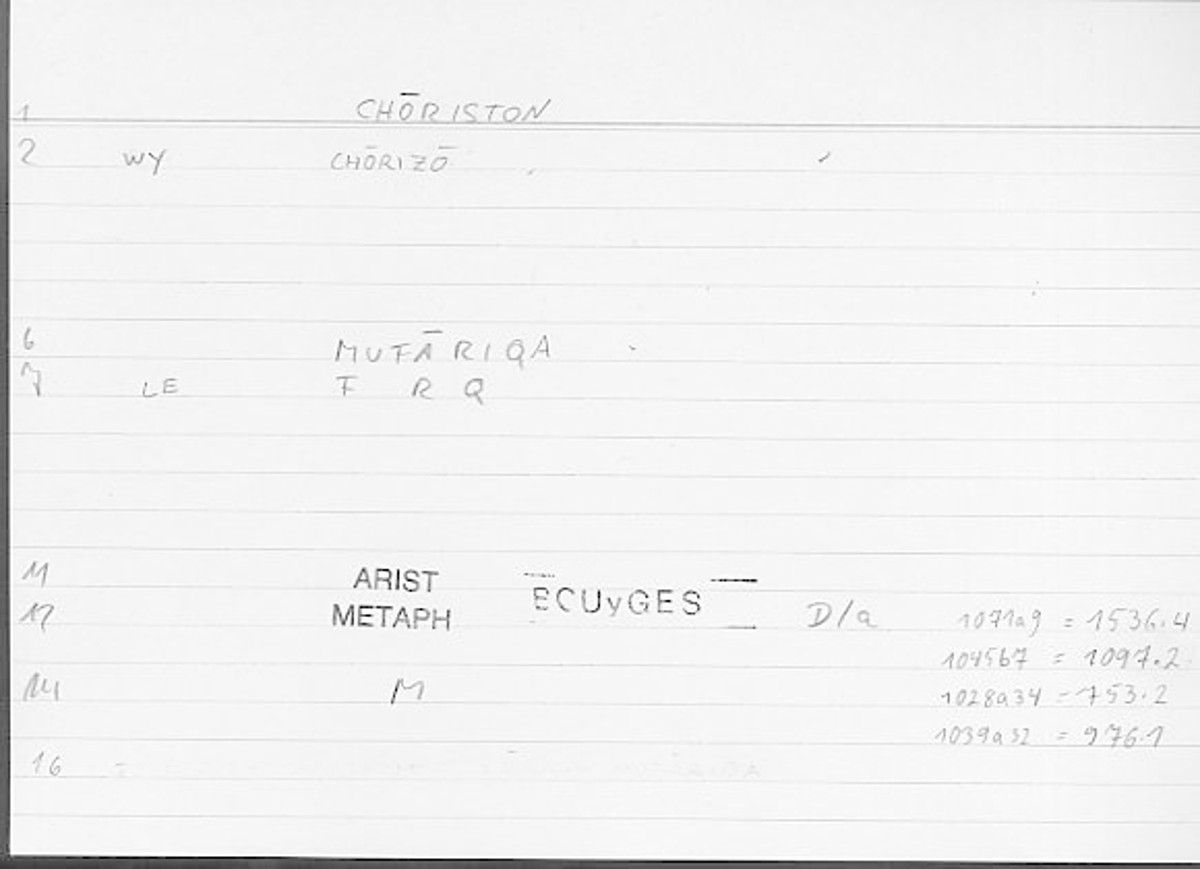 1 CHŌRISTON
2 WY CHŌRIZŌ
6 MUFĀRIQA
7 LE F R Q
11 ARIST ECUyGES
12 METAPH D/a 1071a9 = 1536.4
1045b7 = 1097.2
14 M 1028a34 = 753.2
1039a32 = 976.1
16